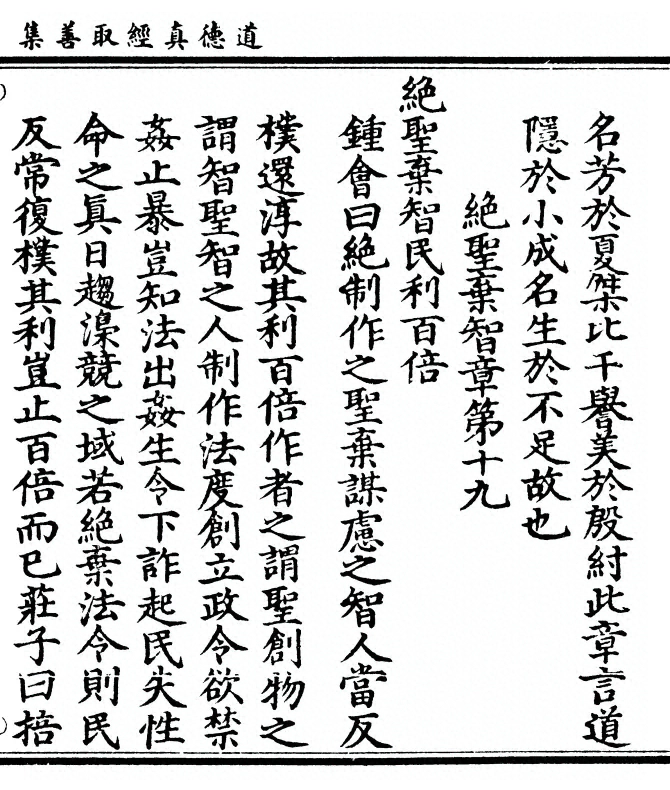 道德真經取善集
名芳於夏桀比干譽美於殷紂此章言道
隱於小成名生於不足故也
絕聖棄智章第十九
絕聖棄智民利百倍
鍾會曰絕制作之聖棄謀慮之智人當反
樸還淳故其利百倍作者之謂聖創物之
謂智聖智之人制作法度創立政令欲禁
姦止暴豈知法出姦生令下詐起民失性
命之眞日趨澡競之域若絕棄法令則民
反常復樸其利豈止百倍而已莊子曰掊